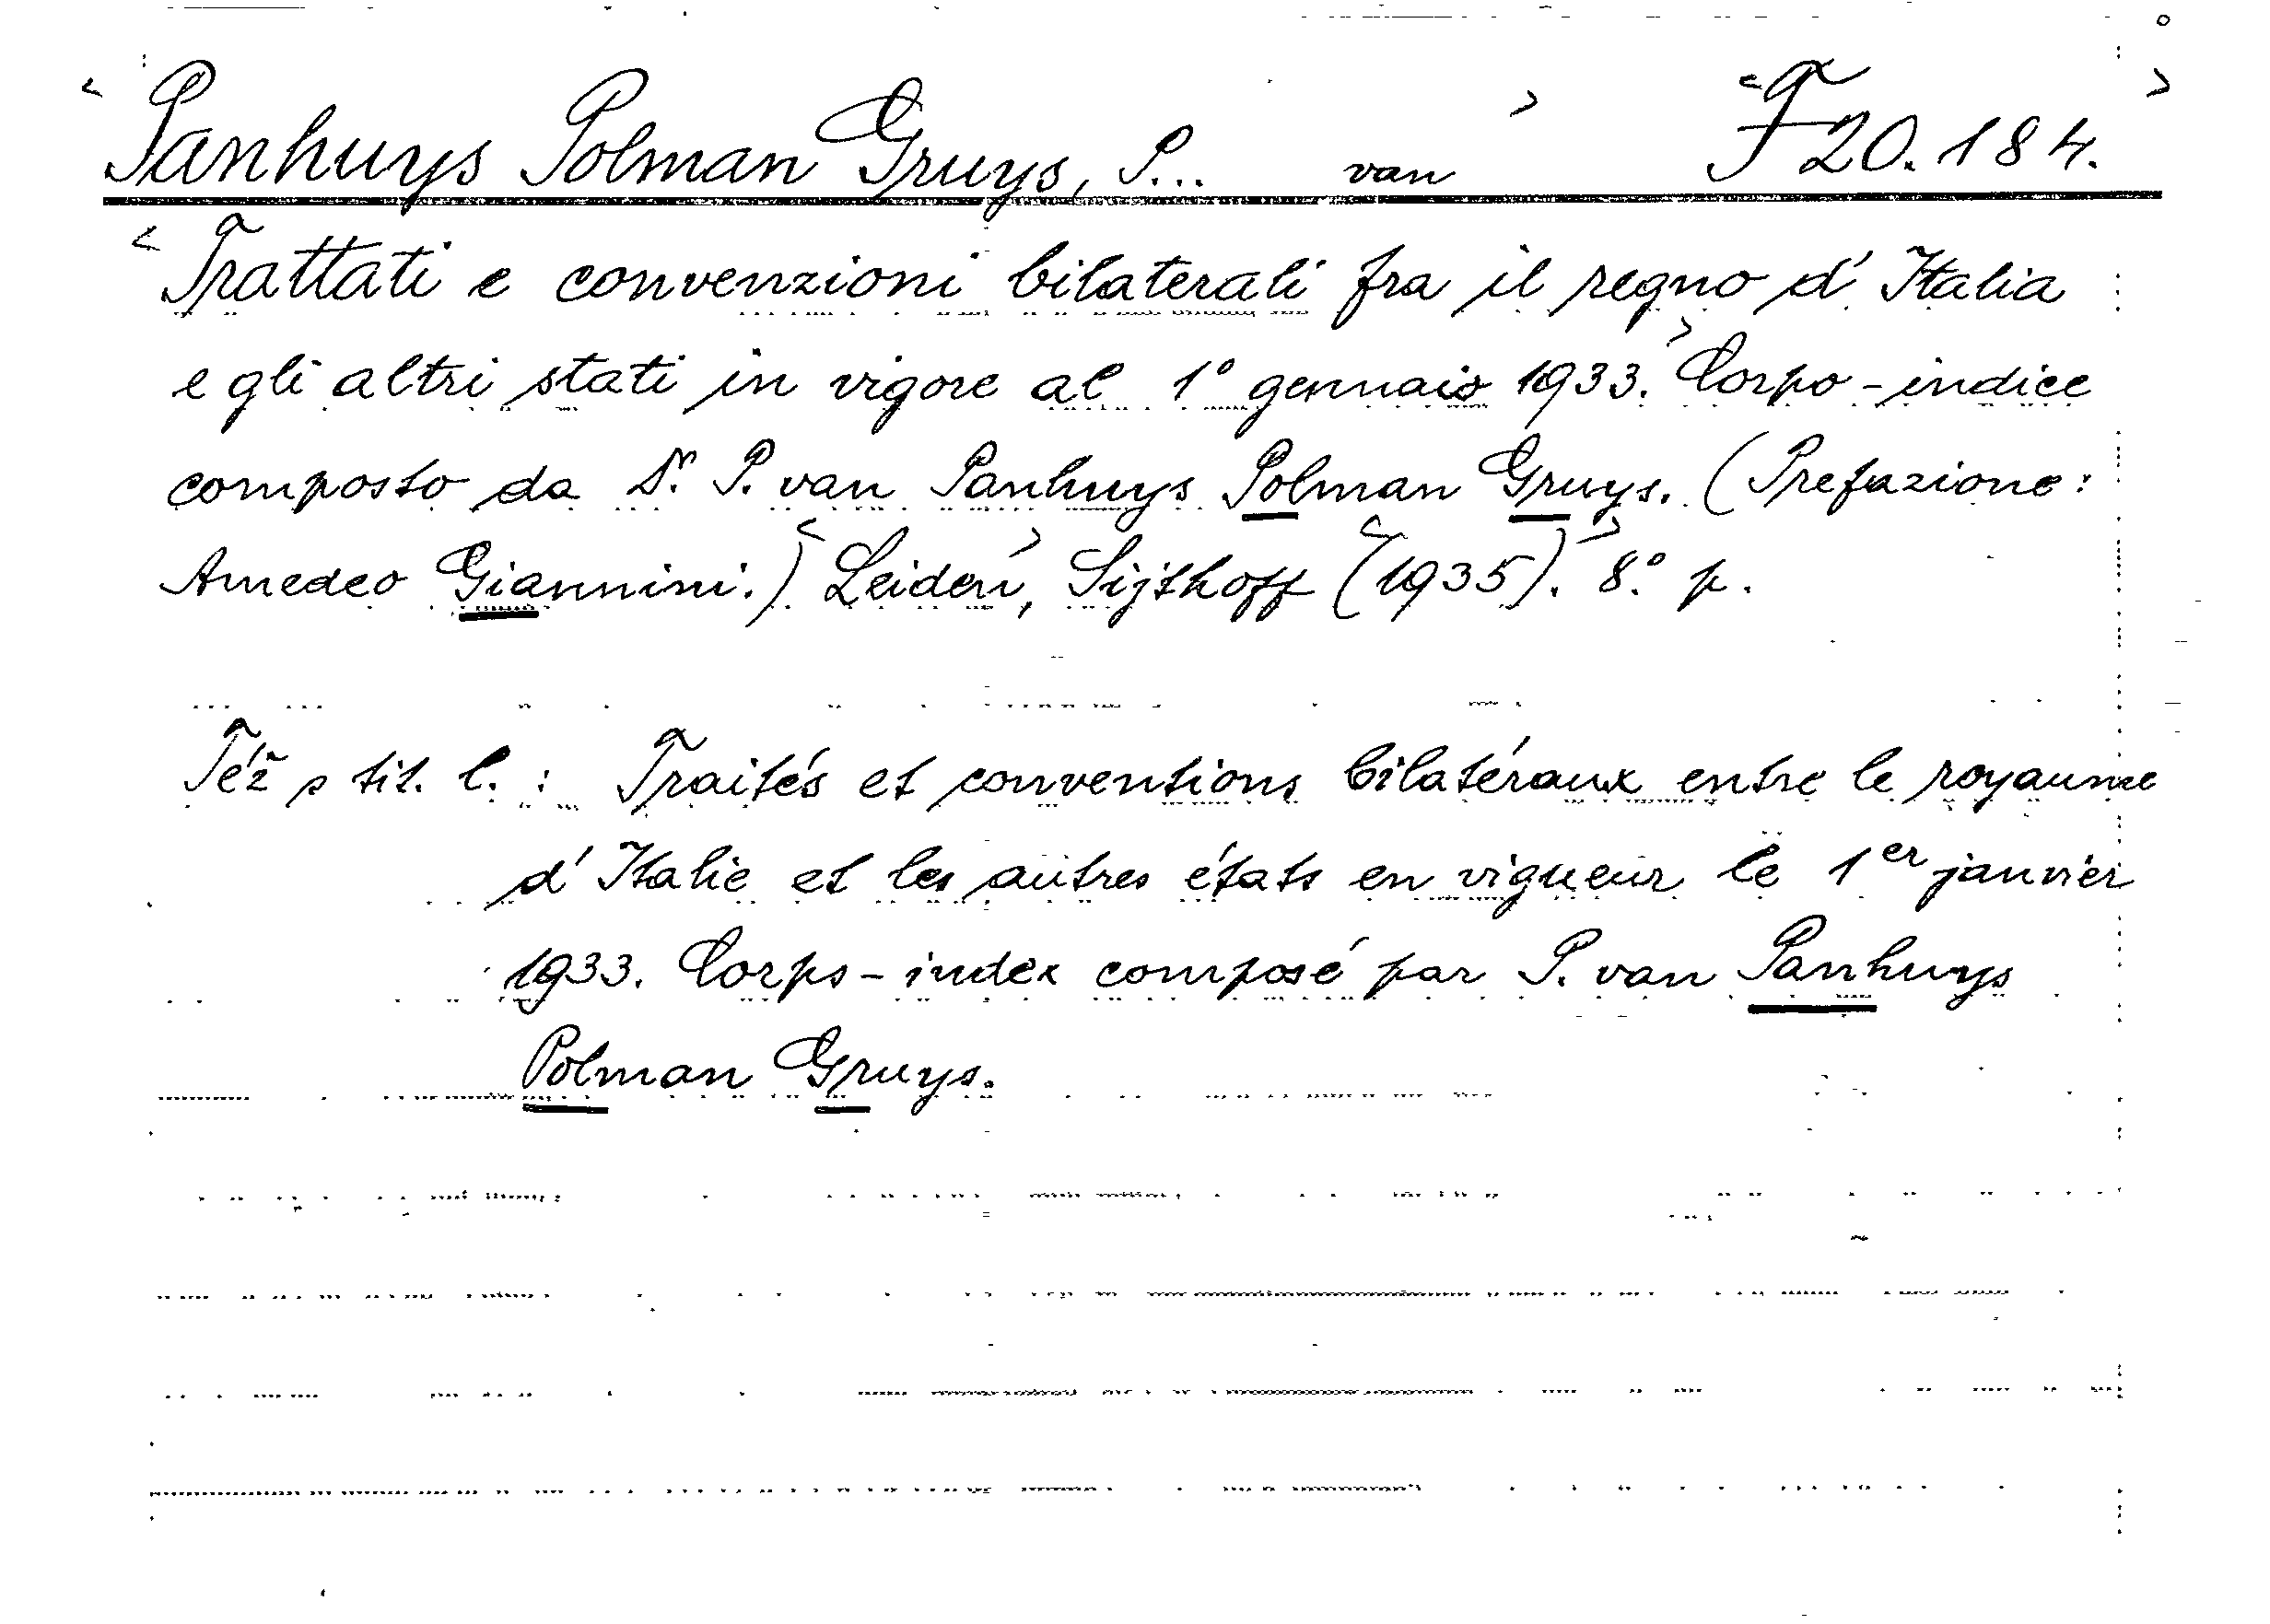 Panhuys Polman Gruys, P... van F 20.184.
Trattati e convenzioni bilaterali fra il regno d'Italia
e gli altri stati in vigore al 1° gennaio 1933. Corpo-indice
composto da Dr. P. van Panhuys Polman Gruys. (Prefazione:
Amedeo Giannini.) Leiden, Sijthoff (1935). 8°. p.
Též s tit. l.: Traités et conventions bilatéraux entre le royaume
d'Italie et les autres états en vigueur le 1er janvier
1933. Corps-index composé par P. van Panhuys
Polman Gruys.